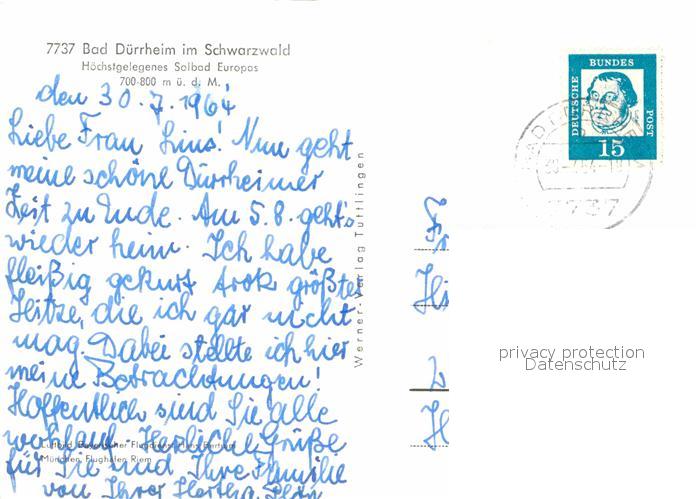 7737 Bad Dürrheim im Schwarzwald
Höchstgelegenes Solbad Europas
700-800 m ü. d. M.
den 30.7.1964
Liebe Frau Lins! Nun geht
meine schöne Dürrheimer
Zeit zu Ende. Am 5.8. geht's
wieder heim. Ich habe
fleißig gekurt trotz größter
Hitze, die ich gar nicht
mag. Dabei stellte ich hier
meine Betrachtungen!
Hoffentlich sind Sie alle
wohlauf. Herzliche Grüße
für Sie und Ihre Familie
von Ihrer Hertha
Luftbild Bayerischer Flugdienst Hans Bertram
München Flughafen Riem
Werner-Verlag Tuttlingen
DEUTSCHE
BUNDES
POST
15
7737
privacy protection
Datenschutz